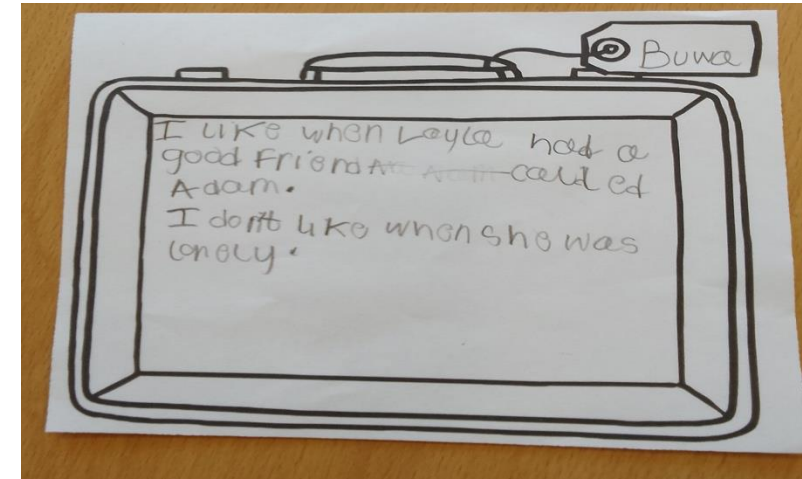 Buwa
I like when Layla had a
good friend called
Adam.
I don't like when she was
lonely.